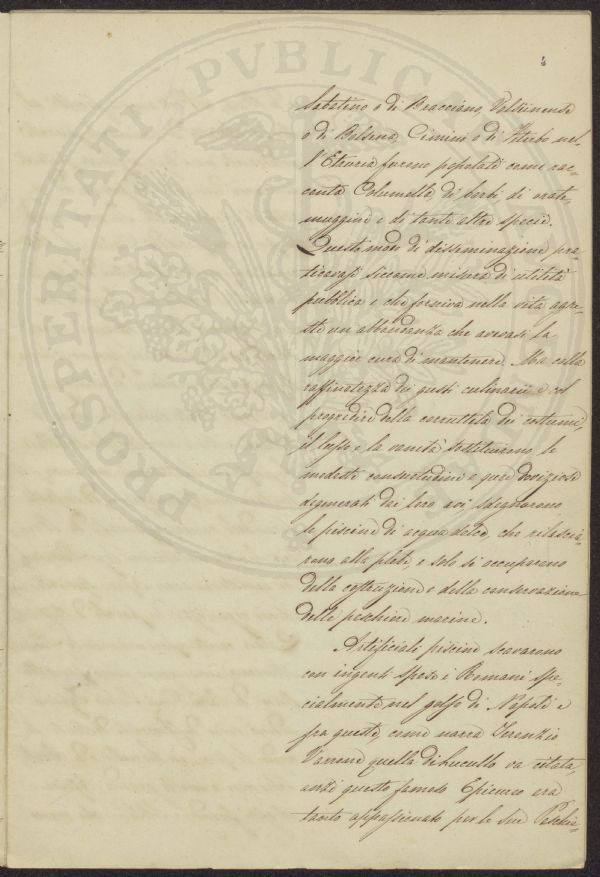 4
PROSPERITATI PVBLICAE
Sabatino o di Bracciano, Volsinense
o di Bolsena, Cimino o di Viterbo nel-
l'Etruria furono popolati come rac-
conta Columella di lupi, di orate,
muggini e di tante altre specie.
Questo modo di disseminazione pra-
ticavasi siccome misura di utilità
pubblica e che forniva nella vita agre-
ste un abbondanza che aveasi la
maggior cura di mantenere. Ma colla
raffinatezza dei gusti culinarii e col
progredire della corruttela dei costumi,
il lusso e la vanità sostituirono le
modeste consuetudini e quei doviziosi
degenerati dai loro avi sdegnarono
le piscine di acqua dolce, che rilascia-
rono alla plebe e solo si occuparono
della costruzione e della conservazione
delle peschiere marine.
Artificiali piscine scavarono
con ingenti spese i Romani spe-
cialmente nel golfo di Napoli e
fra queste, come narra Terenzio
Varrone quella di Lucullo va citata,
anzi questo famoso Epicureo era
tanto appassionato per le sue Peschie-